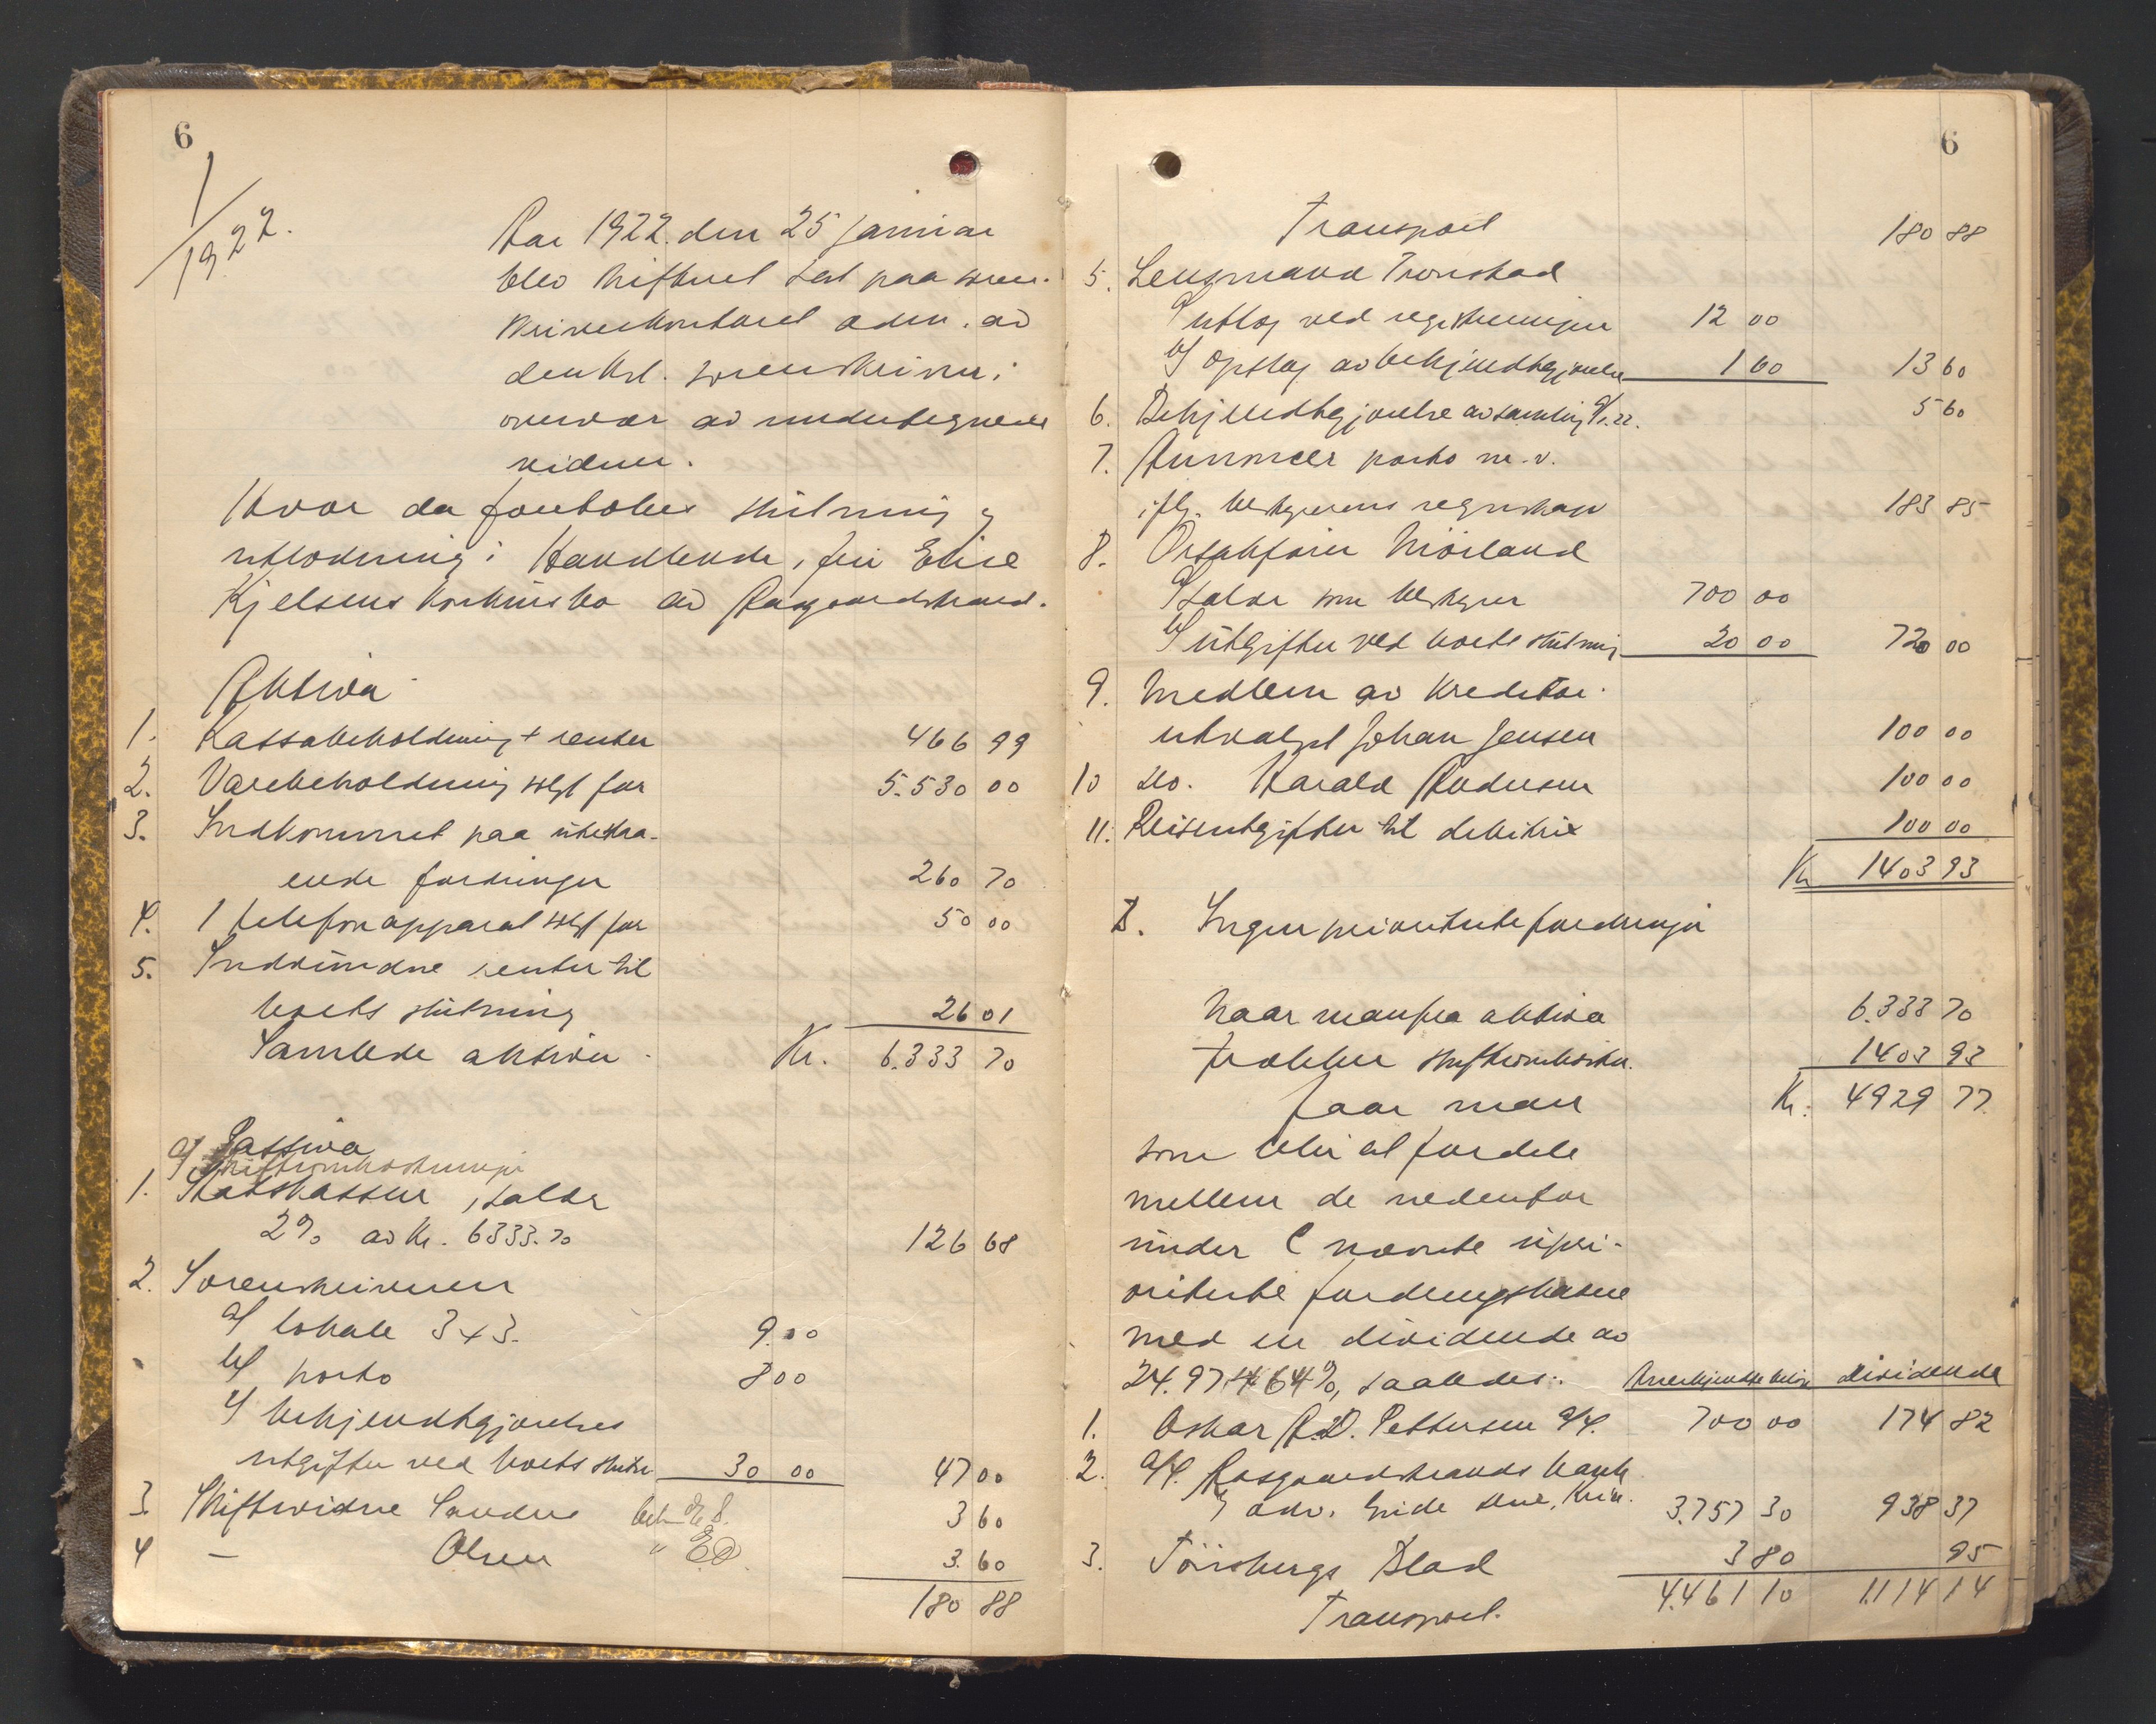 6
1/1922.
Aar 1922. den 25 januar
blev skifteret sat paa soren-
skriverkontoret adm. av
den kst. sorenskriver i
overvær av undertegnede
vidner.
Hvor da foretokes slutning og
utlodning i Handlende, fru Elise
Kjelsens konkursbo av Aasgaardstrand.
Aktiva
1. Kassabeholdning + renter 466 99
2. Varebeholdning solgt for 5.530 00
3. Indkommet paa utestaa-
ende fordringer 260 70
4. 1 telefonapparat solgt for 50 00
5. Indvundne renter til
boets slutning 26 01
Samlede aktiva Kr. 6.333 70
Passiva
a/ Skifteomkostninger
1. Statskassen, salær
2% av Kr. 6333.70 126 68
2. Sorenskriveren
a/ lokale 3 x 3. 9.00
b/ porto 8 00
c/ bekjendtgjørelses
utgifter ved boets slutn. 30 00 47 00
3. Skiftevidne 3 60
4 — Olsen " EO. 3.60
180 88
6
Transport 180 88
5. Lensmand Tronstad
a/ utlæg ved registreringen 12 00
b/ opslag av bekjendtgjørelse 1 60 13 60
6. Bekjendtgjørelse av samling 5 60
7. Annoncer porto m.v.
ifølg. bestyrerens regnskap 183 85
8. Overretssakfører
a/ Salær som bestyrer 700 00
b/ utgifter ved boets slutning 20 00 720 00
9. Medlem av kreditor-
utvalget Johan Jensen 100 00
10 do. Harald Andersen 100 00
11. Reiseutgifter til debitrix 100 00
Kr 1403 93
B. Ingen prioriterte fordringer
Naar man fra aktiva 6.333 70
trækker skifteomkostn. 1403 93
faar man Kr. 4929 77
som blir at fordele
mellem de nedenfor
under C nævnte upri-
oriterte fordringshavere
med en dividende av
24.971464%, saaledes: Anerkjendte beløp dividende
1. Oskar A.D. Pettersen A/S. 700 00 174 82
2. A/S. Aasgaardstrands bank
v/ adv. 3.757 30 938 37
3. Tønsbergs Blad 3 80 95
Transport. 4.461 10 1.114 14